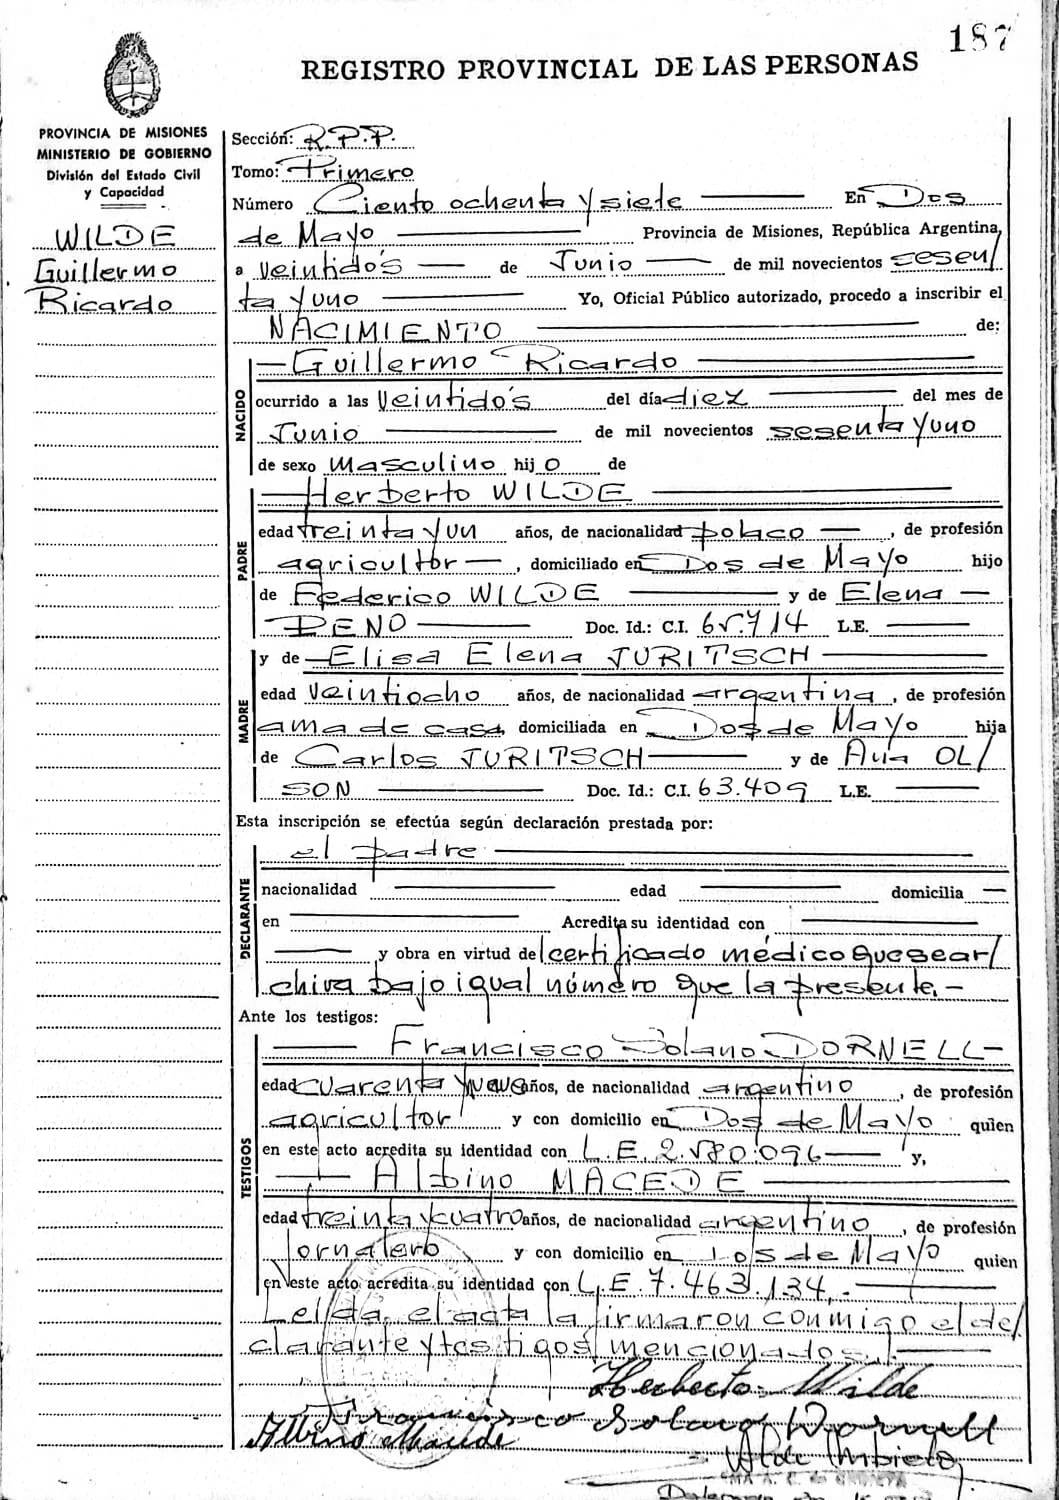 187
REGISTRO PROVINCIAL DE LAS PERSONAS
PROVINCIA DE MISIONES
MINISTERIO DE GOBIERNO
División del Estado Civil
y Capacidad
WILDE
Guillermo
Ricardo
Sección: R.P.P.
Tomo: Primero
Número Ciento ochenta y siete En Dos
de Mayo Provincia de Misiones, República Argentina,
a Veintidós de Junio de mil novecientos sesen/
ta y uno Yo, Oficial Público autorizado, procedo a inscribir el
NACIMIENTO de:
NACIDO
Guillermo Ricardo
ocurrido a las Veintidós del día diez del mes de
Junio de mil novecientos sesenta y uno
de sexo Masculino hijo de
PADRE
Herberto WILDE
edad treinta y un años, de nacionalidad polaco, de profesión
agricultor, domiciliado en Dos de Mayo hijo
de Federico WILDE y de Elena
DENO Doc. Id.: C.I. 65.714 L.E.
MADRE
y de Elisa Elena JURITSCH
edad Veintiocho años, de nacionalidad argentina, de profesión
ama de casa, domiciliada en Dos de Mayo hija
de Carlos JURITSCH y de OL/
SON Doc. Id.: C.I. 63.409 L.E.
Esta inscripción se efectúa según declaración prestada por:
DECLARANTE
el padre
nacionalidad edad domicilia
en Acredita su identidad con
y obra en virtud del certificado médico que se ar/
chiva bajo igual número que la presente.-
Ante los testigos:
TESTIGOS
Francisco Solano DORNELL
edad cuarenta y nueve años, de nacionalidad argentino, de profesión
agricultor y con domicilio en Dos de Mayo quien
en este acto acredita su identidad con L.E. 2.580.096 y,
Albino MACEDE
edad treinta y cuatro años, de nacionalidad argentino, de profesión
Jornalero y con domicilio en Dos de Mayo quien
en este acto acredita su identidad con L.E. 7.463.134.-
Leída el acta la firmaron conmigo el de/
clarante y testigos mencionados.
Herberto Wilde
Francisco Solano Dornell
Albino